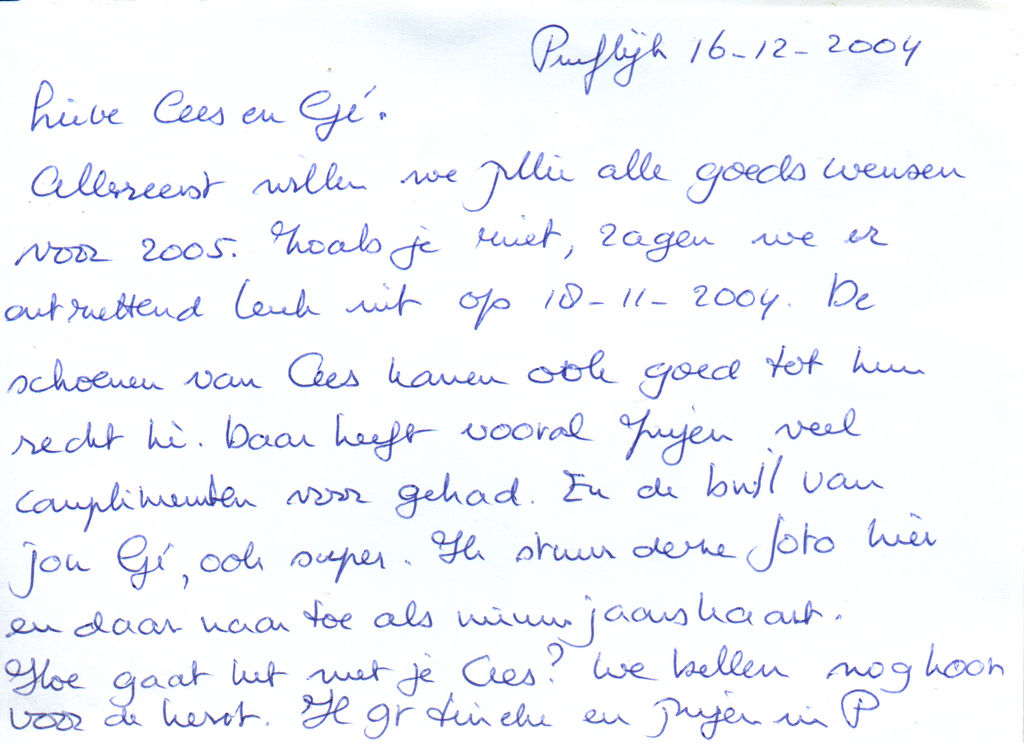 Puiflijk 16-12-2004
Lieve Cees en Gé.
Allereerst willen we jullie alle goeds wensen
voor 2005. Zoals je ziet, zagen we er
ontzettend leuk uit op 18-11-2004. De
schoenen van Cees kamen ook goed tot hun
recht hè. Daar heeft vooral veel
complimenten voor gehad. En de bril van
jou Gé, ook super. Ik stuur deze foto hier
en daar naar toe als nieuwjaarskaart.
Hoe gaat het met je Cees? We bellen nog hoor
voor de kerst. H gr Tineke en in P